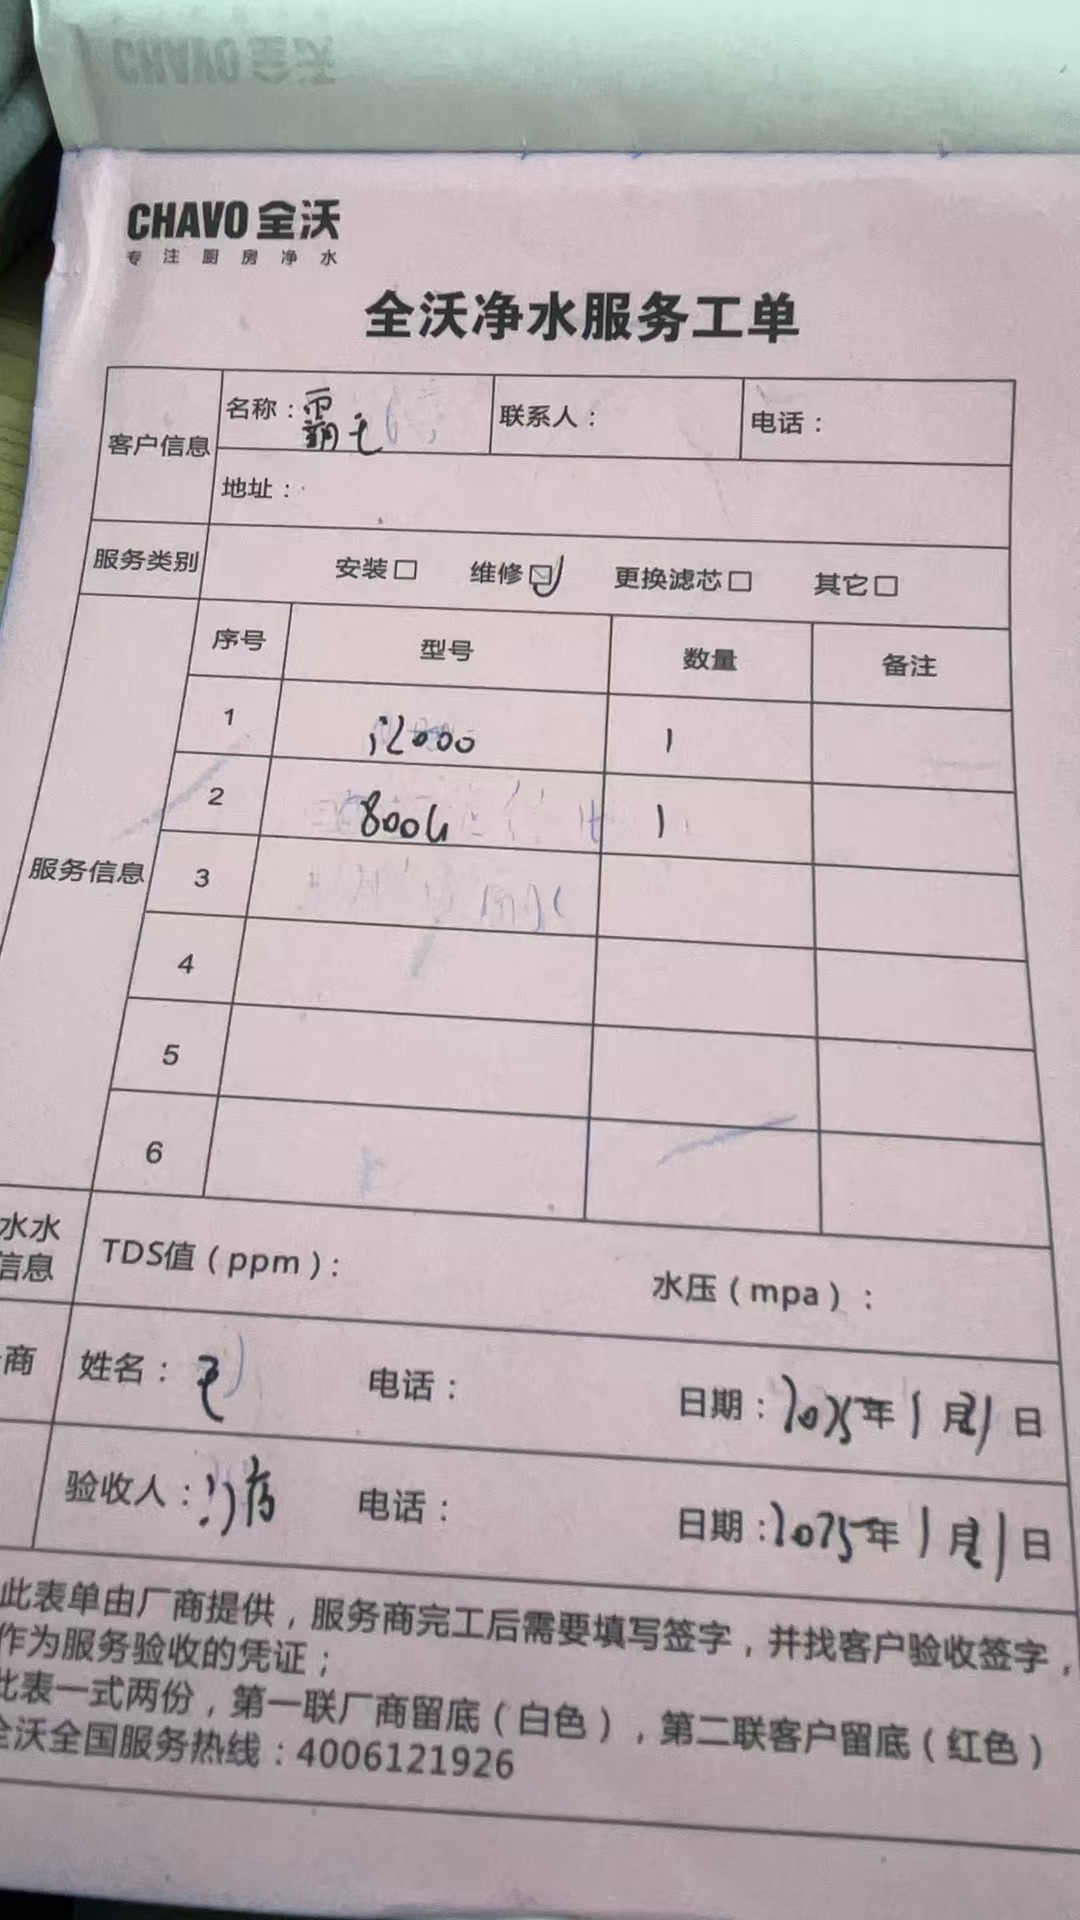 CHAVO 全沃
CHAVO 全沃
专注厨房净水
全沃净水服务工单
客户信息 名称：霸王 联系人： 电话：
地址：
服务类别 安装□ 维修☑ 更换滤芯□ 其它□
服务信息 序号 型号 数量 备注
1 i2000 1
2 800G 1
3
4
5
6
水水
信息
TDS值（ppm）： 水压（mpa）：
商 姓名： 电话： 日期：2025年1月21日
验收人： 电话： 日期：2025年1月21日
此表单由厂商提供，服务商完工后需要填写签字，并找客户验收签字，
作为服务验收的凭证；
此表一式两份，第一联厂商留底（白色），第二联客户留底（红色）
全沃全国服务热线：4006121926